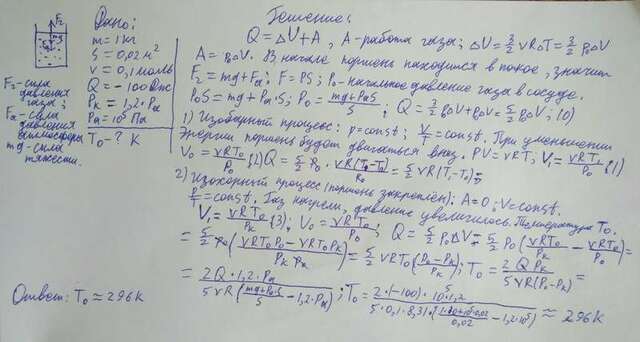 Дано:
m = 1 кг
S = 0,02 м²
ν = 0,1 моль
Q = -100 Дж
Pк = 1,2·Pa
Pa = 10⁵ Па
T₀ - ? К
F₂
mg
Fa
F₂ - сила
давления
газа;
Fa - сила
давления
атмосферы
mg - сила
тяжести.
Решение:
Q = ΔU + A, A - работа газа; ΔU = 3/2 νRΔT = 3/2 p₀ΔV
A = p₀ΔV. В начале поршень находился в покое, значит
F₂ = mg + Fa; F = PS; P₀ - начальное давление газа в сосуде.
P₀S = mg + Pa·S; P₀ = (mg + PaS)/S; Q = 3/2 p₀ΔV + p₀ΔV = 5/2 p₀ΔV; (0)
1) Изобарный процесс: p = const; V/T = const. При уменьшении
энергии поршень будет двигаться вниз. PV = νRT; V₁ = νRT₁/P₀; (1)
V₀ = νRT₀/P₀; (2) Q = 5/2 p₀ · νR(T₁-T₀)/P₀ = 5/2 νR(T₁-T₀);
2) Изохорный процесс (поршень закреплён): A = 0; V = const.
P/T = const. Газ нагрели, давление увеличилось. Температура T₀.
V₁ = νRT₀/Pк; (3); V₀ = νRT₀/P₀; Q = 5/2 p₀ΔV = 5/2 p₀(νRT₀/Pк - νRT₀/P₀) =
= 5/2 p₀((νRT₀P₀ - νRT₀Pк)/(Pк P₀)) = 5/2 νRT₀((P₀-Pк)/Pк); T₀ = 2QPк/(5νR(P₀-Pк)) =
= 2Q·1,2·Pa/(5νR((mg+PaS)/S - 1,2·Pa)); T₀ = 2·(-100)·10⁵·1,2/(5·0,1·8,31·((1·10+10⁵·0,02)/0,02 - 1,2·10⁵)) ≈ 296 К
Ответ: T₀ ≈ 296 К